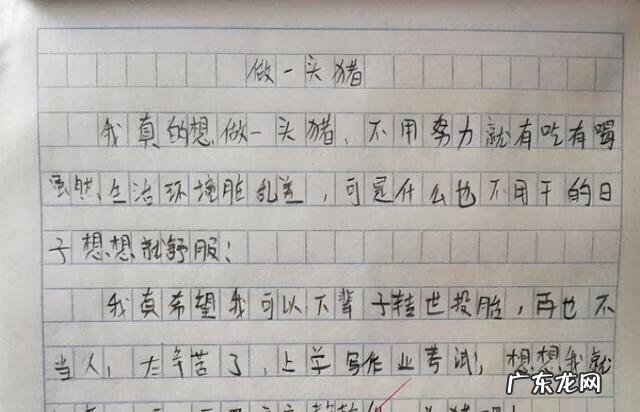 做一头猪
我真的想做一头猪、不用努力就有吃有喝
虽然生治环境脏乱差，可是什么也不用干的日
子想想就舒服！
我真希望我可以下辈子转世投胎，再也不
当人，太辛苦了，上学写作业考试，想想我就
广东龙网